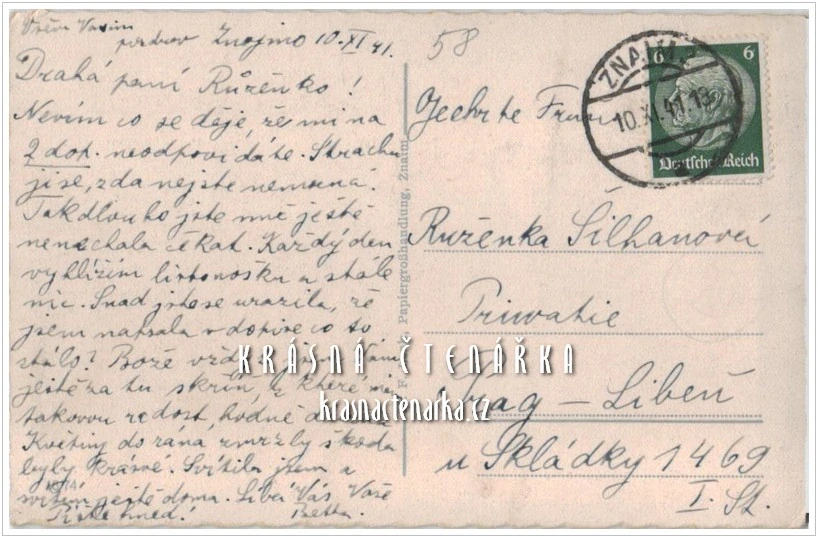 Všem Vašim
pozdrav Znojmo 10-XI 41.
Drahá paní Růženko!
Nevím co se děje, že mi na
2 dop. neodpovídáte. Strachuji
se, zda nejste nemocná.
Tak dlouho jste mě ještě
nenechala čekat. Každý den
vyhlížím listonošku a stále
nic. Snad jste se urazila, že
jsem napsala v dopise co to
stálo? Bože vždy Vám
ještě za tu skříň, z které
takovou radost, hodně
Květiny do rána zmrzly škoda
byly krásné. Svítila jsem a
svítím ještě doma. Líbá Vás Vaše
Pište hned! Betta
58
Papiergroßhandlung, Znaim
ZNAIM 2
10.XI.41.18
6 6
Deutsches Reich
Růženka Šilhanová
Priwatie
Prag – Libeň
u Skládky 1469
I. St.
KRÁSNÁ ČTENÁŘKA
krasnactenarka.cz